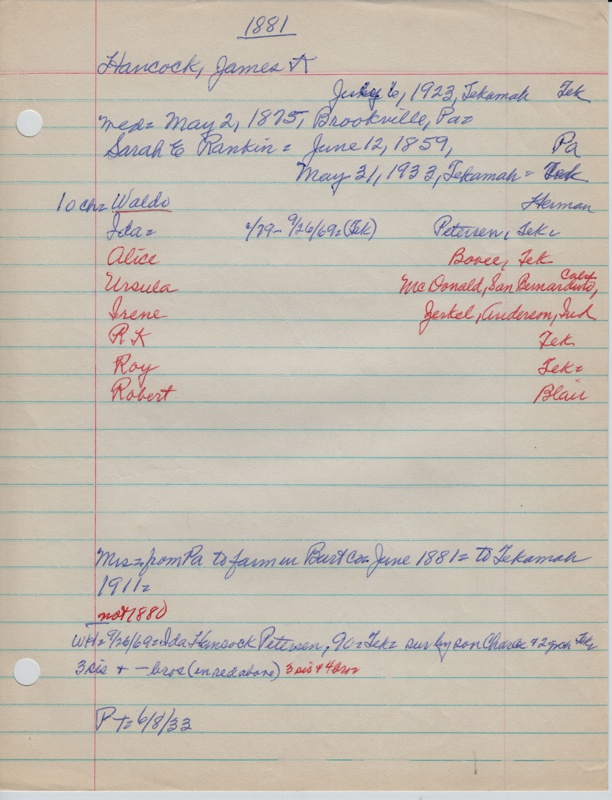 1881
Hancock, James K
July 6, 1923, Tekamah Tek
med= May 2, 1875, Brookville, Pa=
Sarah E Rankin = June 12, 1859, Pa
May 31, 1933, Tekamah = Tek
10 ch= Waldo Herman
Ida= 2/79- 9/26/69=(Tek) Petersen, Tek=
Alice Bovee, Tek
Ursula McDonald, San Bernardino, Calif
Irene Anderson, Ind
R K Tek
Roy Tek=
Robert Blair
Mrs= from Pa to farm in Burt Co= June 1881= to Tekamah
1911=
not 1880
WH= 9/26/69= Ida Hancock Petersen, 90= Tek= sur by son Charles & 2 Tek
3 sis & - bros (in red above) 3 sis & 4 bros
P T= 6/8/33